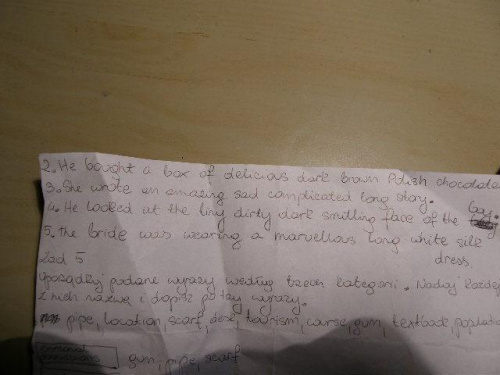 2. He bought a box of delicious dark brown Polish chocolate
3. She wrote an amazing sad complicated long story.
4. He looked at the tiny dirty dark smiling face of the boy.
5. The bride was wearing a marvellous long white silk
dress.
Zad 5
Uporządkuj podane wyrazy według trzech kategorii. Nadaj każdej
z nich nazwę i dopisz po trzy wyrazy.
pipe, location, scarf, tourism, course, gum, textbook, populatio
gum, pipe, scarf